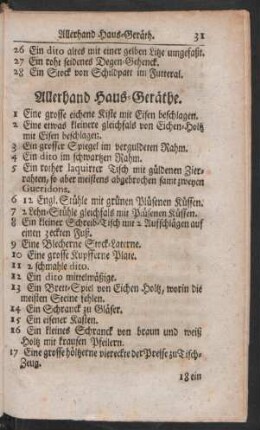 Allerhand Haus-Geräth. 31
26 Ein dito altes mit einer gelben Litze umgefaßt.
27 Ein roht seidenes Degen-Gehenck.
28 Ein Stock von Schildpatt im Futteral.
Allerhand Haus-Geräthe.
1 Eine grosse eichene Kiste mit Eisen beschlagen.
2 Eine etwas kleinere gleichfals von Eichen-Holtz
mit Eisen beschlagen.
3 Ein grosser Spiegel im verguldeten Rahm.
4 Ein dito im schwartzen Rahm.
5 Ein rother laquirter Tisch mit güldenen Zier-
rahten, so aber meistens abgebrochen samt zweyen
Gueridons.
6 12 Engl. Stühle mit grünen Plüsenen Küssen.
7 2 Lehn-Stühle gleichfals mit Plüsenen Küssen.
8 Ein kleiner Schreib-Tisch mit 2 Aufschlägen auf
einen Fuß.
9 Eine Blecherne Stock-Laterne.
10 Eine grosse Kupfferne Plate.
11 2 schmahle dito.
12 Ein dito mittelmäßige.
13 Ein Brett-Spiel von Eichen Holtz, worin die
meisten Steine fehlen.
14 Ein Schranck zu Gläser.
15 Ein eiserner Kasten.
16 Ein kleines Schranck von braun und weiß
Holtz mit krausen Pfeilern.
17 Eine grosse höltzerne viereckte Presse zu Tisch-
Zeug.
18 ein